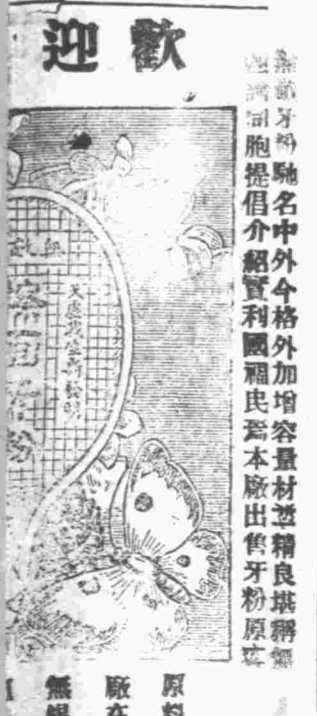 歡迎
牙粉馳名中外今格外加增容量材精良堪稱無
同胞提倡介紹實利國福民焉本廠出售牙粉原
天虛我生所發明
牙粉
原料
廠在
無錫